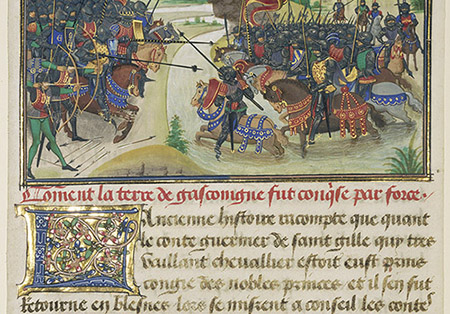 Coment la terre de gascoingne fut conq̃se par force.
L Ancienne histoire racompte que quant
le conte guerinier de saint gille qui tres
vaillant chevallier estoit eust prins
congie des nobles princes et il sen fut
Retourne en blesnes lors se misrent a conseil les conte